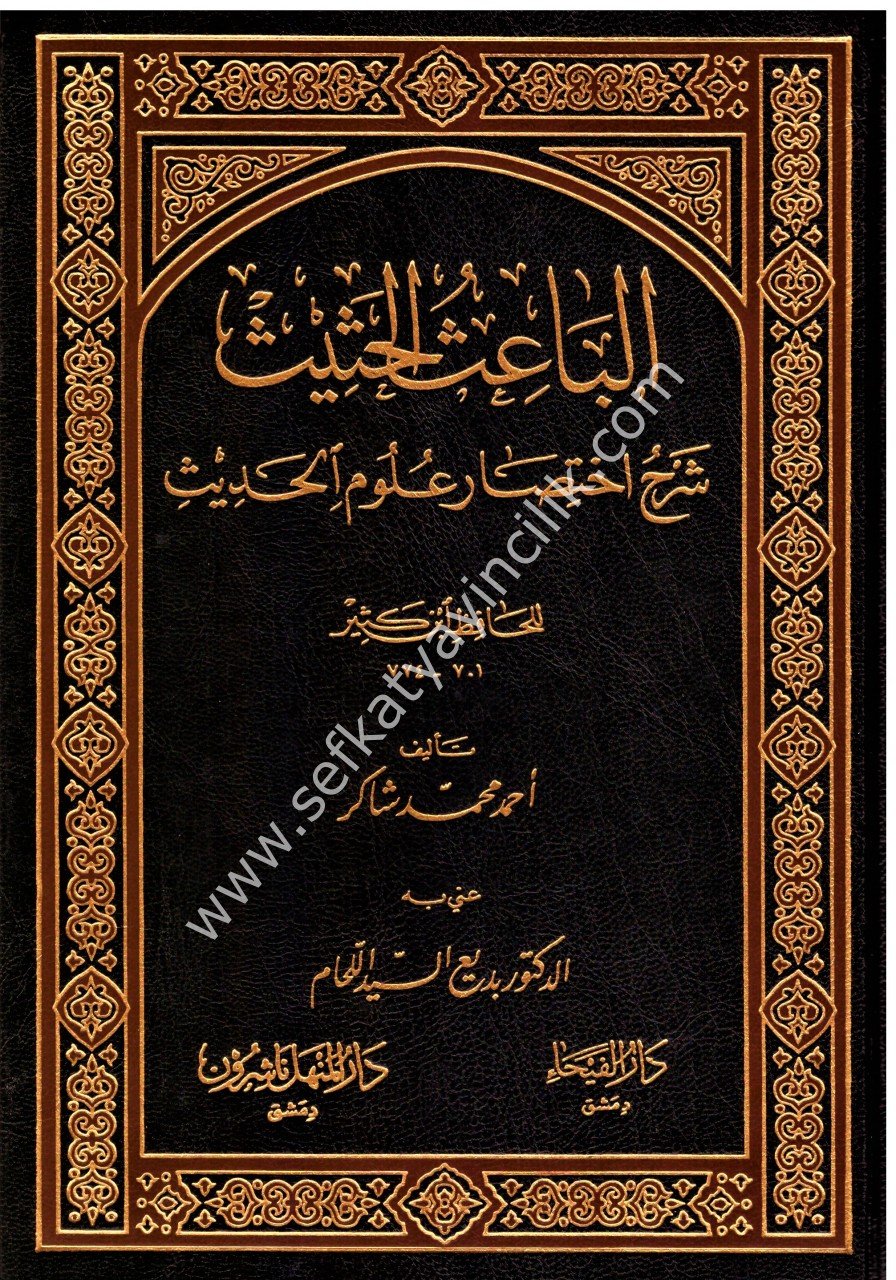 الباعث الحثيث
شَرحُ اختِصَار عُلُومِ الحَدِيثِ
للحَافِظِ ابْنِ كَثِيْرٍ
٧٠١ - ٧٧٤
تأليف
أحمد محمّد شاكر
عني به
الدكتور بديع السيّد اللحام
دَارُ الفَيْحَاء
دمَشق
دَارُ المنهَل نَاشِرُون
دمَشق
www.sefkatyayincilik.com